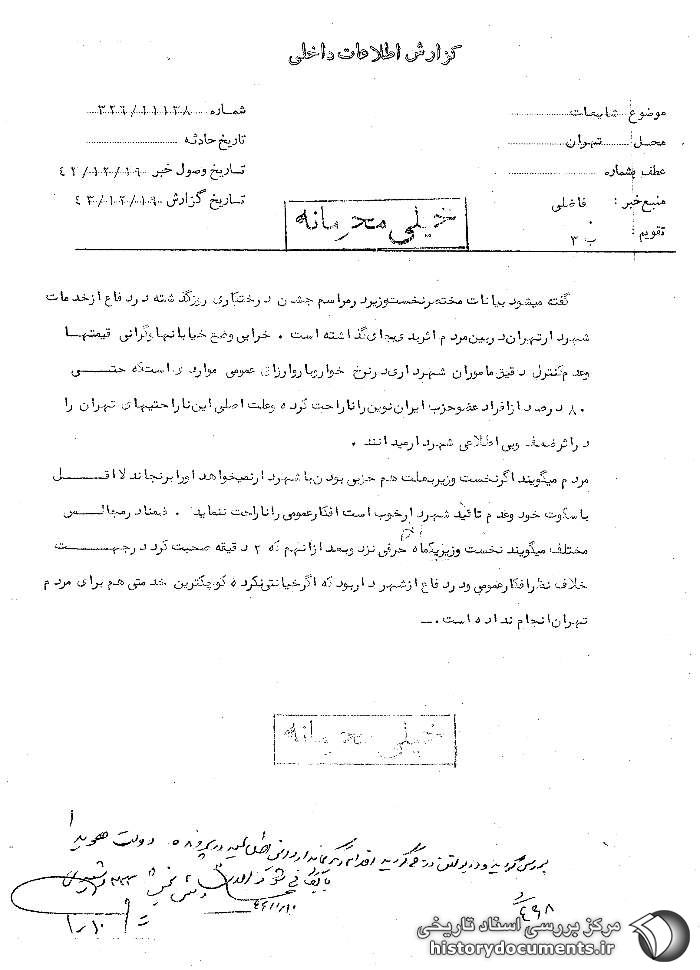 گزارش اطلاعات داخلی
موضوع شایعات
شماره ۳۲۶/۱۱۱۳۸
محل : تهران
تاریخ حادثه
عطف بشماره
تاریخ وصول خبر ۴۲/۱۲/۱۹
منبع خبر : فاضلی
تاریخ گزارش ۴۳/۱۲/۱۹
تقویم : ب ۳
خیلی محرمانه
گفته میشود بیانات مختصر نخست وزیر در مراسم جشن درختکاری روز گذشته در دفاع از خدمات
شهردار تهران در بین مردم اثر بدی بجای گذاشته است . خرابی وضع خیابانها و گرانی قیمتها
وعدم کنترل دقیق ماموران شهرداری در نرخ خواربار و ارزاق عمومی مواردی است که حتی
۸۰ درصد از افراد عضو حزب ایران نوین را ناراحت کرده وعلت اصلی این ناراحتیهای تهران را
در اثر ضعف وبی اطلاعی شهردار میدانند .
مردم میگویند اگر نخست وزیر بعلت هم حزبی بودن با شهردار نمیخواهد اورا برنجاند لااقل
با سکوت خود وعدم تائید شهردار خوب است افکار عمومی را ناراحت ننماید . ضمنا در مجالس
مختلف میگویند نخست وزیر یکماه حرفی نزد وبعد از آنهم که ۲ دقیقه صحبت کرد در جهت
خلاف نظر افکار عمومی ودر دفاع از شهردار بود که اگر خیانتی نکرده کوچکترین خدمتی هم برای مردم
تهران انجام نداده است .ــ
خیلی محرمانه
دولت هویدا
مرکز بررسی اسناد تاریخی
historydocuments.ir